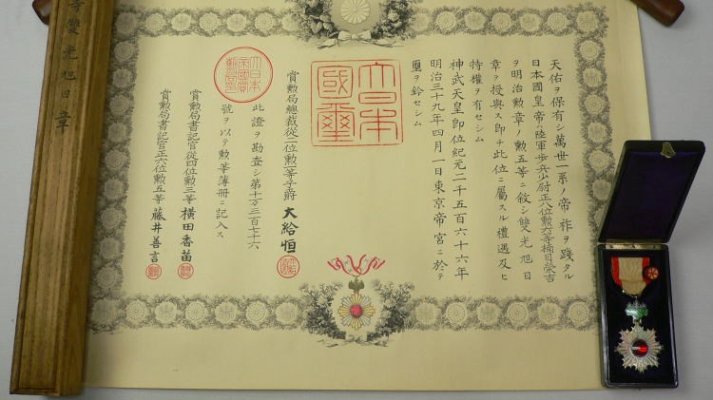 天佑ヲ保有シ萬世一系ノ帝祚ヲ踐タル
日本國皇帝ハ陸軍歩兵少尉正八位勲六等
ヲ明治勲章ノ勲五等ニ敍シ雙光旭日
章ヲ授與ス即チ此位ニ屬スル禮遇及ヒ
特權ヲ有セシム
神武天皇即位紀元二千五百六十六年
明治三十九年四月一日東京帝宮ニ於テ
璽ヲ鈐セシム
大日本國璽
賞勲局總裁從二位勲一等子爵 大給恒
此證ヲ勘査シ第十万三百七十六
號ヲ以テ勲等簿冊ニ記入ス
賞勲局書記官從四位勲三等 横田香苗
賞勲局書記官正六位勲五等 藤井善言
等雙光旭日章